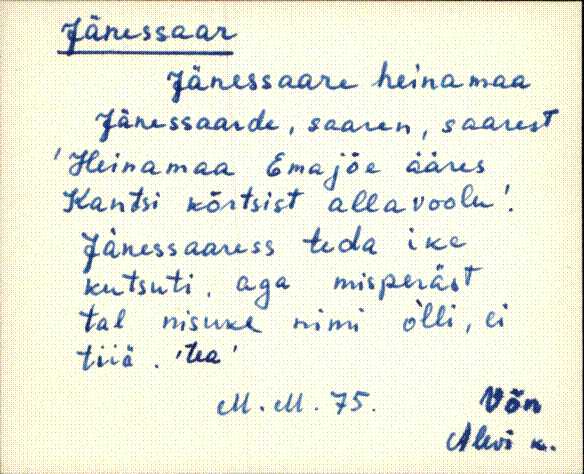 Jänessaar
Jänessaare heinamaa
Jänessaarde, saaren, saarest
'Heinamaa Emajõe ääres
Kantsi kõrtsist allavoolu'.
Jänessaaress teda ike
kutsuti, aga misperäst
tal nisuke nimi olli, ei
tiiä. 'tea'
M.M. 75.
Võn
Alevi k.